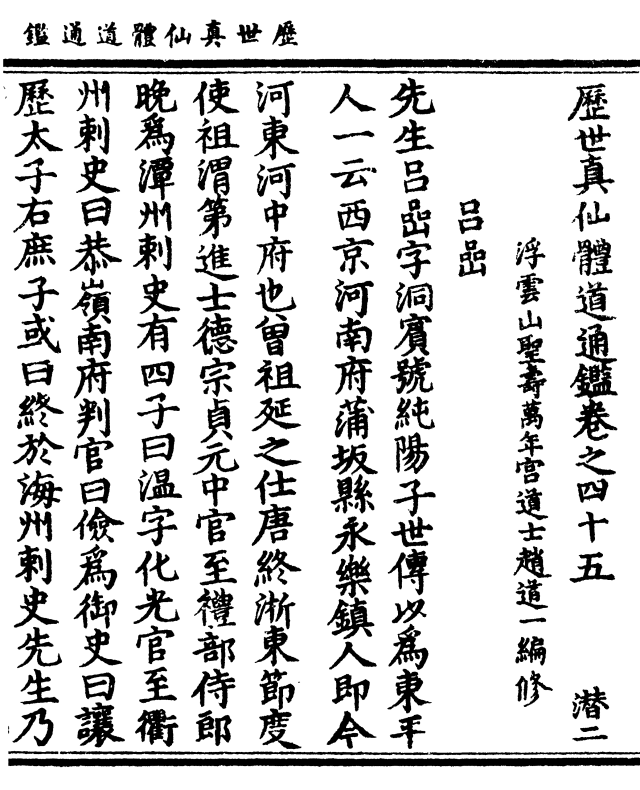 歷世真仙體道通鑑
歷世真仙體道通鑑卷之四十五 潛二
浮雲山聖壽萬年宮道士趙道一編修
呂嵒
先生呂嵒字洞賓號純陽子世傳以爲東平
人一云西京河南府蒲坂縣永樂鎮人即今
河東河中府也曾祖延之仕唐終浙東節度
使祖渭第進士德宗貞元中官至禮部侍郎
晚爲潭州刺史有四子曰温字化光官至衢
州刺史曰恭嶺南府判官曰儉爲御史曰讓
歷太子右庶子或曰終於海州刺史先生乃